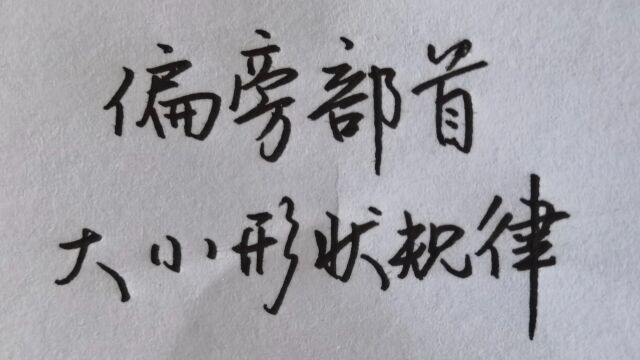 偏旁部首
大小形状规律